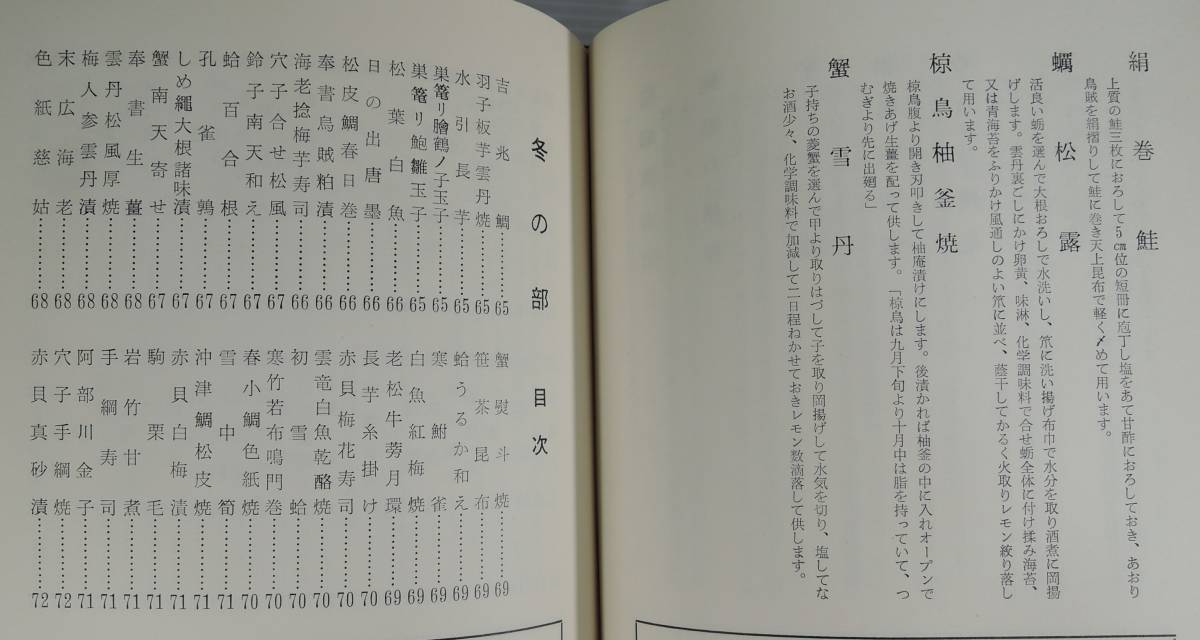 絹巻鮭
上質の鮭三枚におろして5㎝位の短冊に庖丁し塩をあて甘酢におろしておき、あおり
烏賊を絹摺りして鮭に巻き天上昆布で軽く〆めて用います。
蠣松露
活良い蛎を選んで大根おろしで水洗いし、笊に洗い揚げ布巾で水分を取り酒煮に岡揚
げします。雲丹裏ごしにかけ卵黄、味淋、化学調味料で合せ蛎全体に付け揉み海苔、
又は青海苔をふりかけ風通しのよい笊に並べ、蔭干してかるく火取りレモン絞り落し
て用います。
椋鳥柚釜焼
椋鳥腹より開き刃叩きして柚庵漬けにします。後漬かれば柚釜の中に入れオーブンで
焼きあげ生薑を配って供します。「椋鳥は九月下旬より十月中は脂を持っていて、つ
むぎより先に出廻る」
蟹雪丹
子持ちの菱蟹を選んで甲より取りはづして子を取り岡揚げして水気を切り、塩してな
お酒少々、化学調味料で加減して二日程ねかせておきレモン数滴落して供します。
冬の部 目次
吉兆鯛…………65
羽子板芋雲丹焼…………65
水引長芋…………65
巣篭り膾鶴ノ子玉子…………65
巣篭リ鮑雛玉子…………65
松葉白魚…………66
日の出唐墨…………66
松皮鯛春日巻…………66
奉書烏賊粕漬…………66
海老捻梅芋寿司…………66
穴子合せ松風…………67
鈴子南天和え…………67
蛤百合根…………67
孔雀鶉…………67
しめ縄大根諸味漬…………67
蟹南天寄せ…………67
奉書生薑…………68
雲丹松風厚焼…………68
梅人参雲丹漬…………68
末広海老…………68
色紙慈姑…………68
蟹熨斗焼…………69
笹茶昆布…………69
蛤うるか和え…………69
寒鮒雀…………69
白魚紅梅焼…………69
老松牛蒡月環…………69
長芋糸掛け…………70
赤貝梅花寿司…………70
雲竜白魚乾酪焼…………70
初雪蛤…………70
寒竹若布鳴門巻…………70
春小鯛色紙焼…………70
雪中筍…………71
沖津鯛松皮焼…………71
赤貝白梅漬…………71
駒栗毛…………71
岩竹甘煮…………71
手綱寿司…………71
阿部川金子…………71
穴子手綱焼…………72
赤貝真砂漬…………72